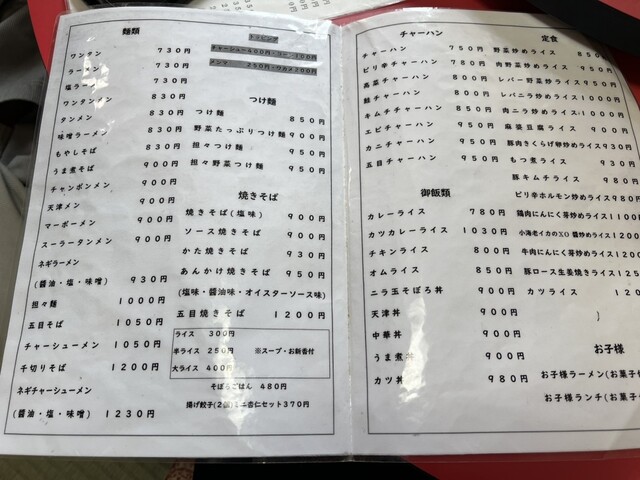 麺類
ワンタン 730円
ラーメン 730円
塩ラーメン 730円
ワンタンメン 830円
タンメン 830円
味噌ラーメン 830円
もやしそば 830円
うま煮そば 900円
チャンポンメン 900円
天津メン 900円
マーボーメン 900円
スーラータンメン 900円
ネギラーメン
(醤油・塩・味噌) 930円
担々麺 1000円
五目そば 1050円
チャーシューメン 1050円
千切りそば 1200円
ネギチャーシューメン
(醤油・塩・味噌) 1230円
トッピング
チャーシュー400円・コーン100円
メンマ 250円・ワカメ200円
つけ麺
つけ麺 850円
野菜たっぷりつけ麺 900円
担々つけ麺 950円
担々野菜つけ麺 950円
焼きそば
焼きそば(塩味) 900円
ソース焼きそば 900円
かた焼きそば 930円
あんかけ焼きそば 950円
(塩味・醤油味・オイスターソース味)
五目焼きそば 1200円
ライス 300円
半ライス 250円 ※スープ・お新香付
大ライス 400円
そぼろごはん 480円
揚げ餃子(2個)ミニ杏仁セット370円
チャーハン
チャーハン 750円
ピリ辛チャーハン 780円
高菜チャーハン 800円
鮭チャーハン 800円
キムチチャーハン 800円
エビチャーハン 900円
カニチャーハン 900円
五目チャーハン 900円
御飯類
カレーライス 780円
カツカレーライス 1030円
チキンライス 800円
オムライス 850円
ニラ玉そぼろ丼 900円
天津丼 900円
中華丼 900円
うま煮丼 900円
カツ丼 980円
定食
野菜炒めライス 850
肉野菜炒めライス 950
レバー野菜炒めライス 950円
レバニラ炒めライス 1000円
肉ニラ炒めライス 1000円
麻婆豆腐ライス 900円
豚肉きくらげ卵炒めライス 930円
もつ煮ライス 930円
豚キムチライス 980円
ピリ辛ホルモン炒めライス 980
鶏肉にんにく芽炒めライス 1100
小海老イカのXO醤炒めライス 1200
牛肉にんにく芽炒めライス 1200
豚ロース生姜焼きライス 125
カツライス 120
お子様
お子様ラーメン(お菓子
お子様ランチ(お菓子付